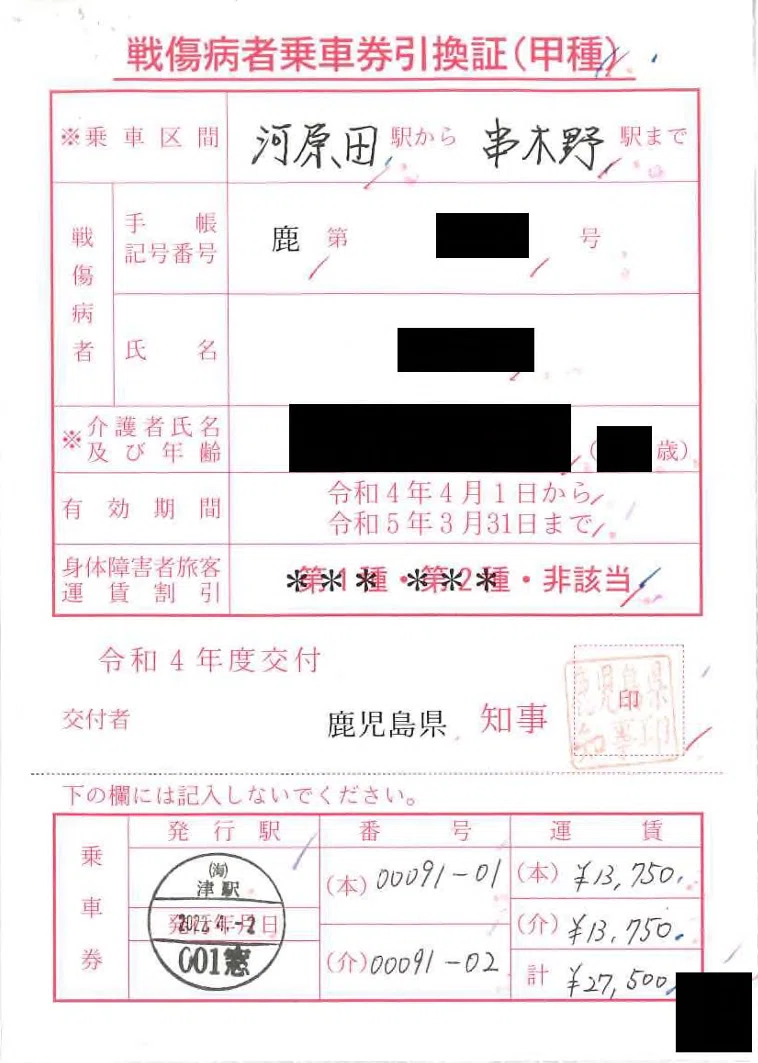 戦傷病者乗車券引換証(甲種)
※乗車区間 河原田駅から 串木野駅まで
戦傷病者
手帳記号番号 鹿 第 号
氏名
※介護者氏名及び年齢 ( 歳)
有効期間 令和4年4月1日から
令和5年3月31日まで
身体障害者旅客運賃割引 *第1種*・*第2種*・非該当
令和4年度交付
交付者 鹿児島県 知事 印
鹿児島県知事印
下の欄には記入しないでください。
乗車券
発行駅 番号 運賃
(海)
津駅
発行年月日
001窓
(本) 00091-01 (本) ¥13,750.
(介) 00091-02 (介) ¥13,750.
計 ¥27,500